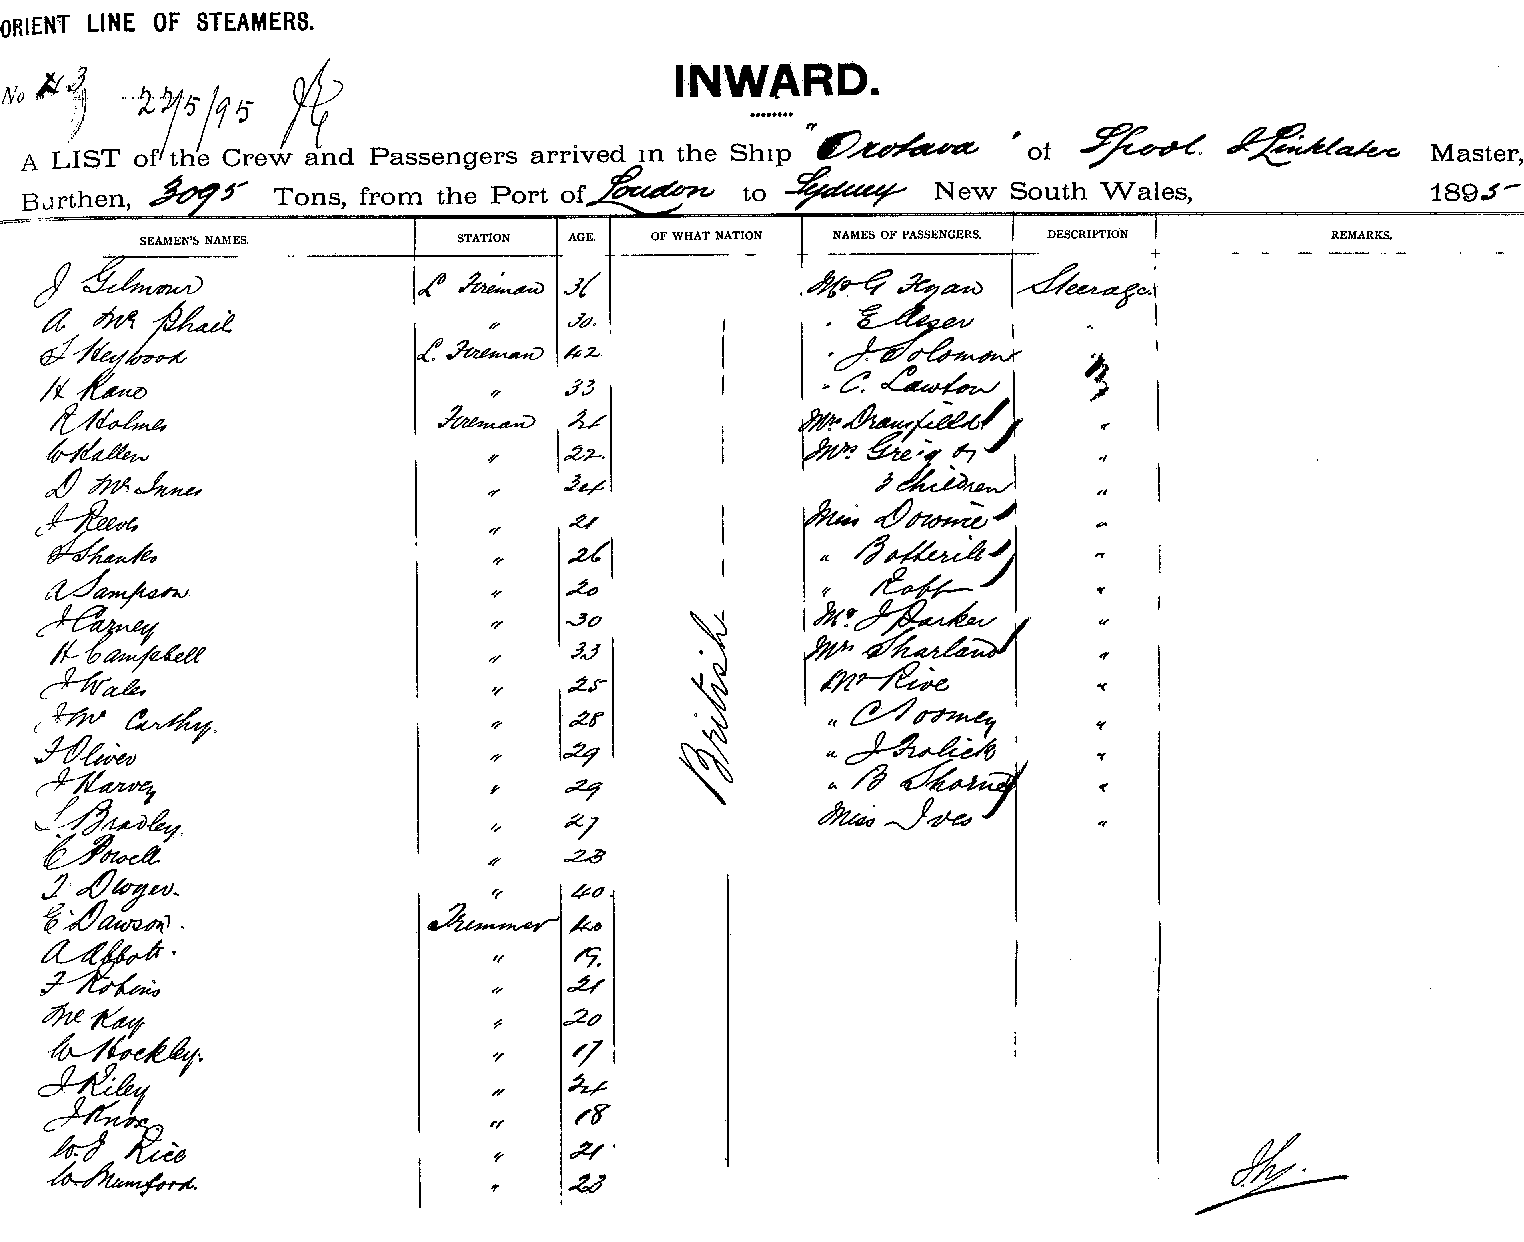 ORIENT LINE OF STEAMERS.
No 43 22/5/95
INWARD.
A LIST of the Crew and Passengers arrived in the Ship "Orotava" of L'pool. J Linklater Master,
Burthen, 3095 Tons, from the Port of London to Sydney New South Wales, 1895
SEAMEN'S NAMES. STATION AGE. OF WHAT NATION NAMES OF PASSENGERS. DESCRIPTION REMARKS.
J Gilmour L Fireman 36 Mr G Flynn Steerage
A McPhail " 30. " E "
Heywood L. Fireman 42 " J. Solomon
H Kane " 33 " C. Lawton
R Holmes Fireman Mrs Dransfield "
W Kallen " 22. Mrs Greig &
D McInnes " 34 3 Children "
J Reeves " 21 Miss Downie "
Shanks " 26 " Botterill "
A Sampson " 20 " Robb "
J Carney " 30 Mr. J Parker "
H Campbell " 33 Mrs Sharland "
J Wales " 25 Mr Rive "
J McCarthy. " 28 " C Toomey "
Oliver " 29 British " J "
J Harvey " 29 " B Thorne "
Bradley " 27 Miss Ives "
C Powell " 23
Dwyer. " 40.
E Dawson. Trimmer 40
A Abbott. " 19.
F Robins " 21
McKay " 20
W Hockley. " 17
J Riley " 24
J Knox " 18
W. J Rice " 21
W. Mumford. " 23